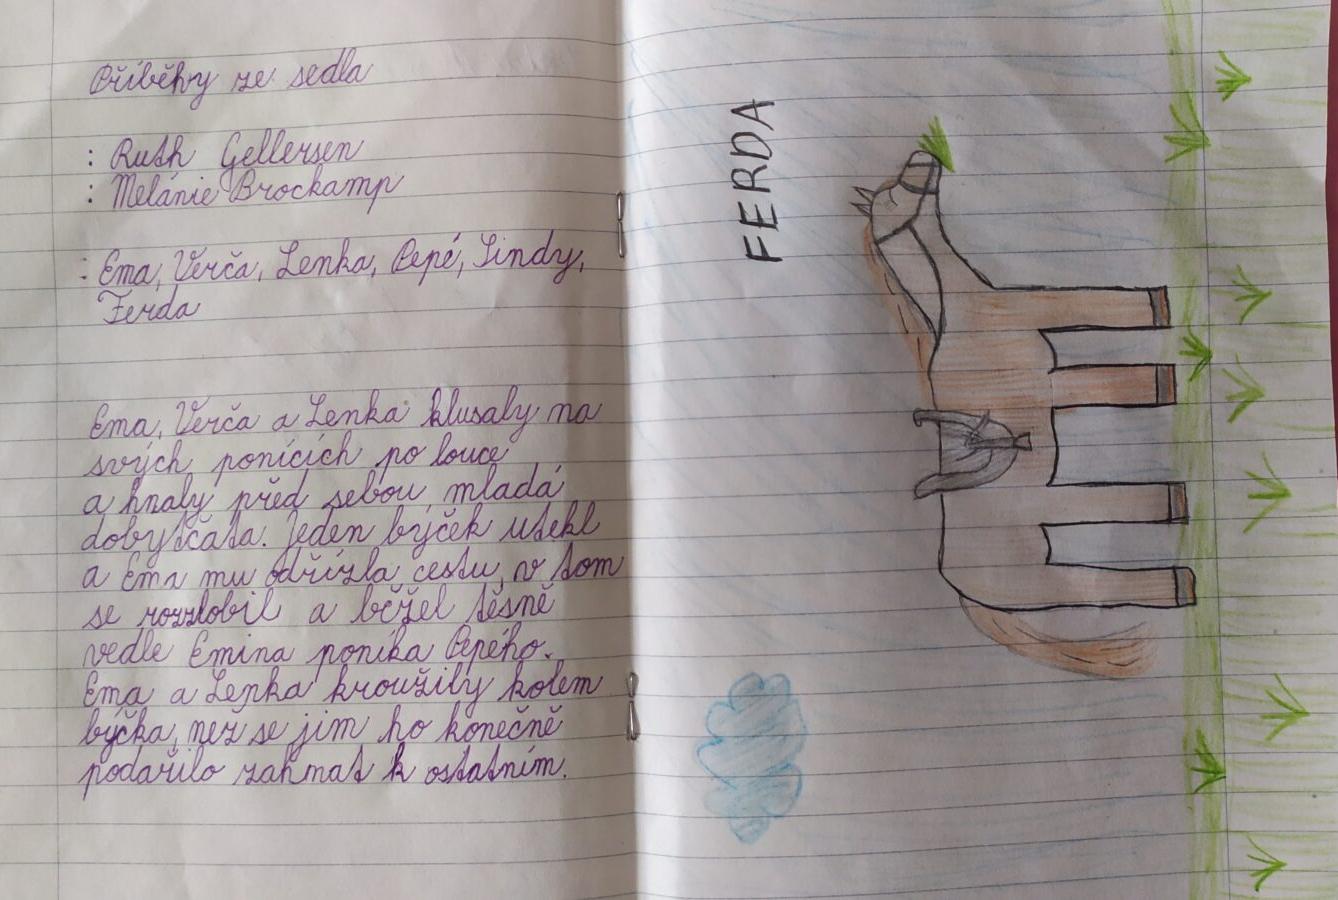 Příběhy ze sedla
: Ruth Gellersen
: Melánie Brockamp
: Ema, Verča, Lenka, Pepé, Sindy,
Ferda
Ema, Verča a Lenka klusaly na
svých ponících po louce
a hnaly před sebou mladá
dobytčata. Jeden býček utekl
a Ema mu odřízla cestu, v tom
se rozzlobil a běžel těsně
vedle Emina poníka Pepého.
Ema a Lenka kroužily kolem
býčka, než se jim ho konečně
podařilo zahnat k ostatním.
FERDA